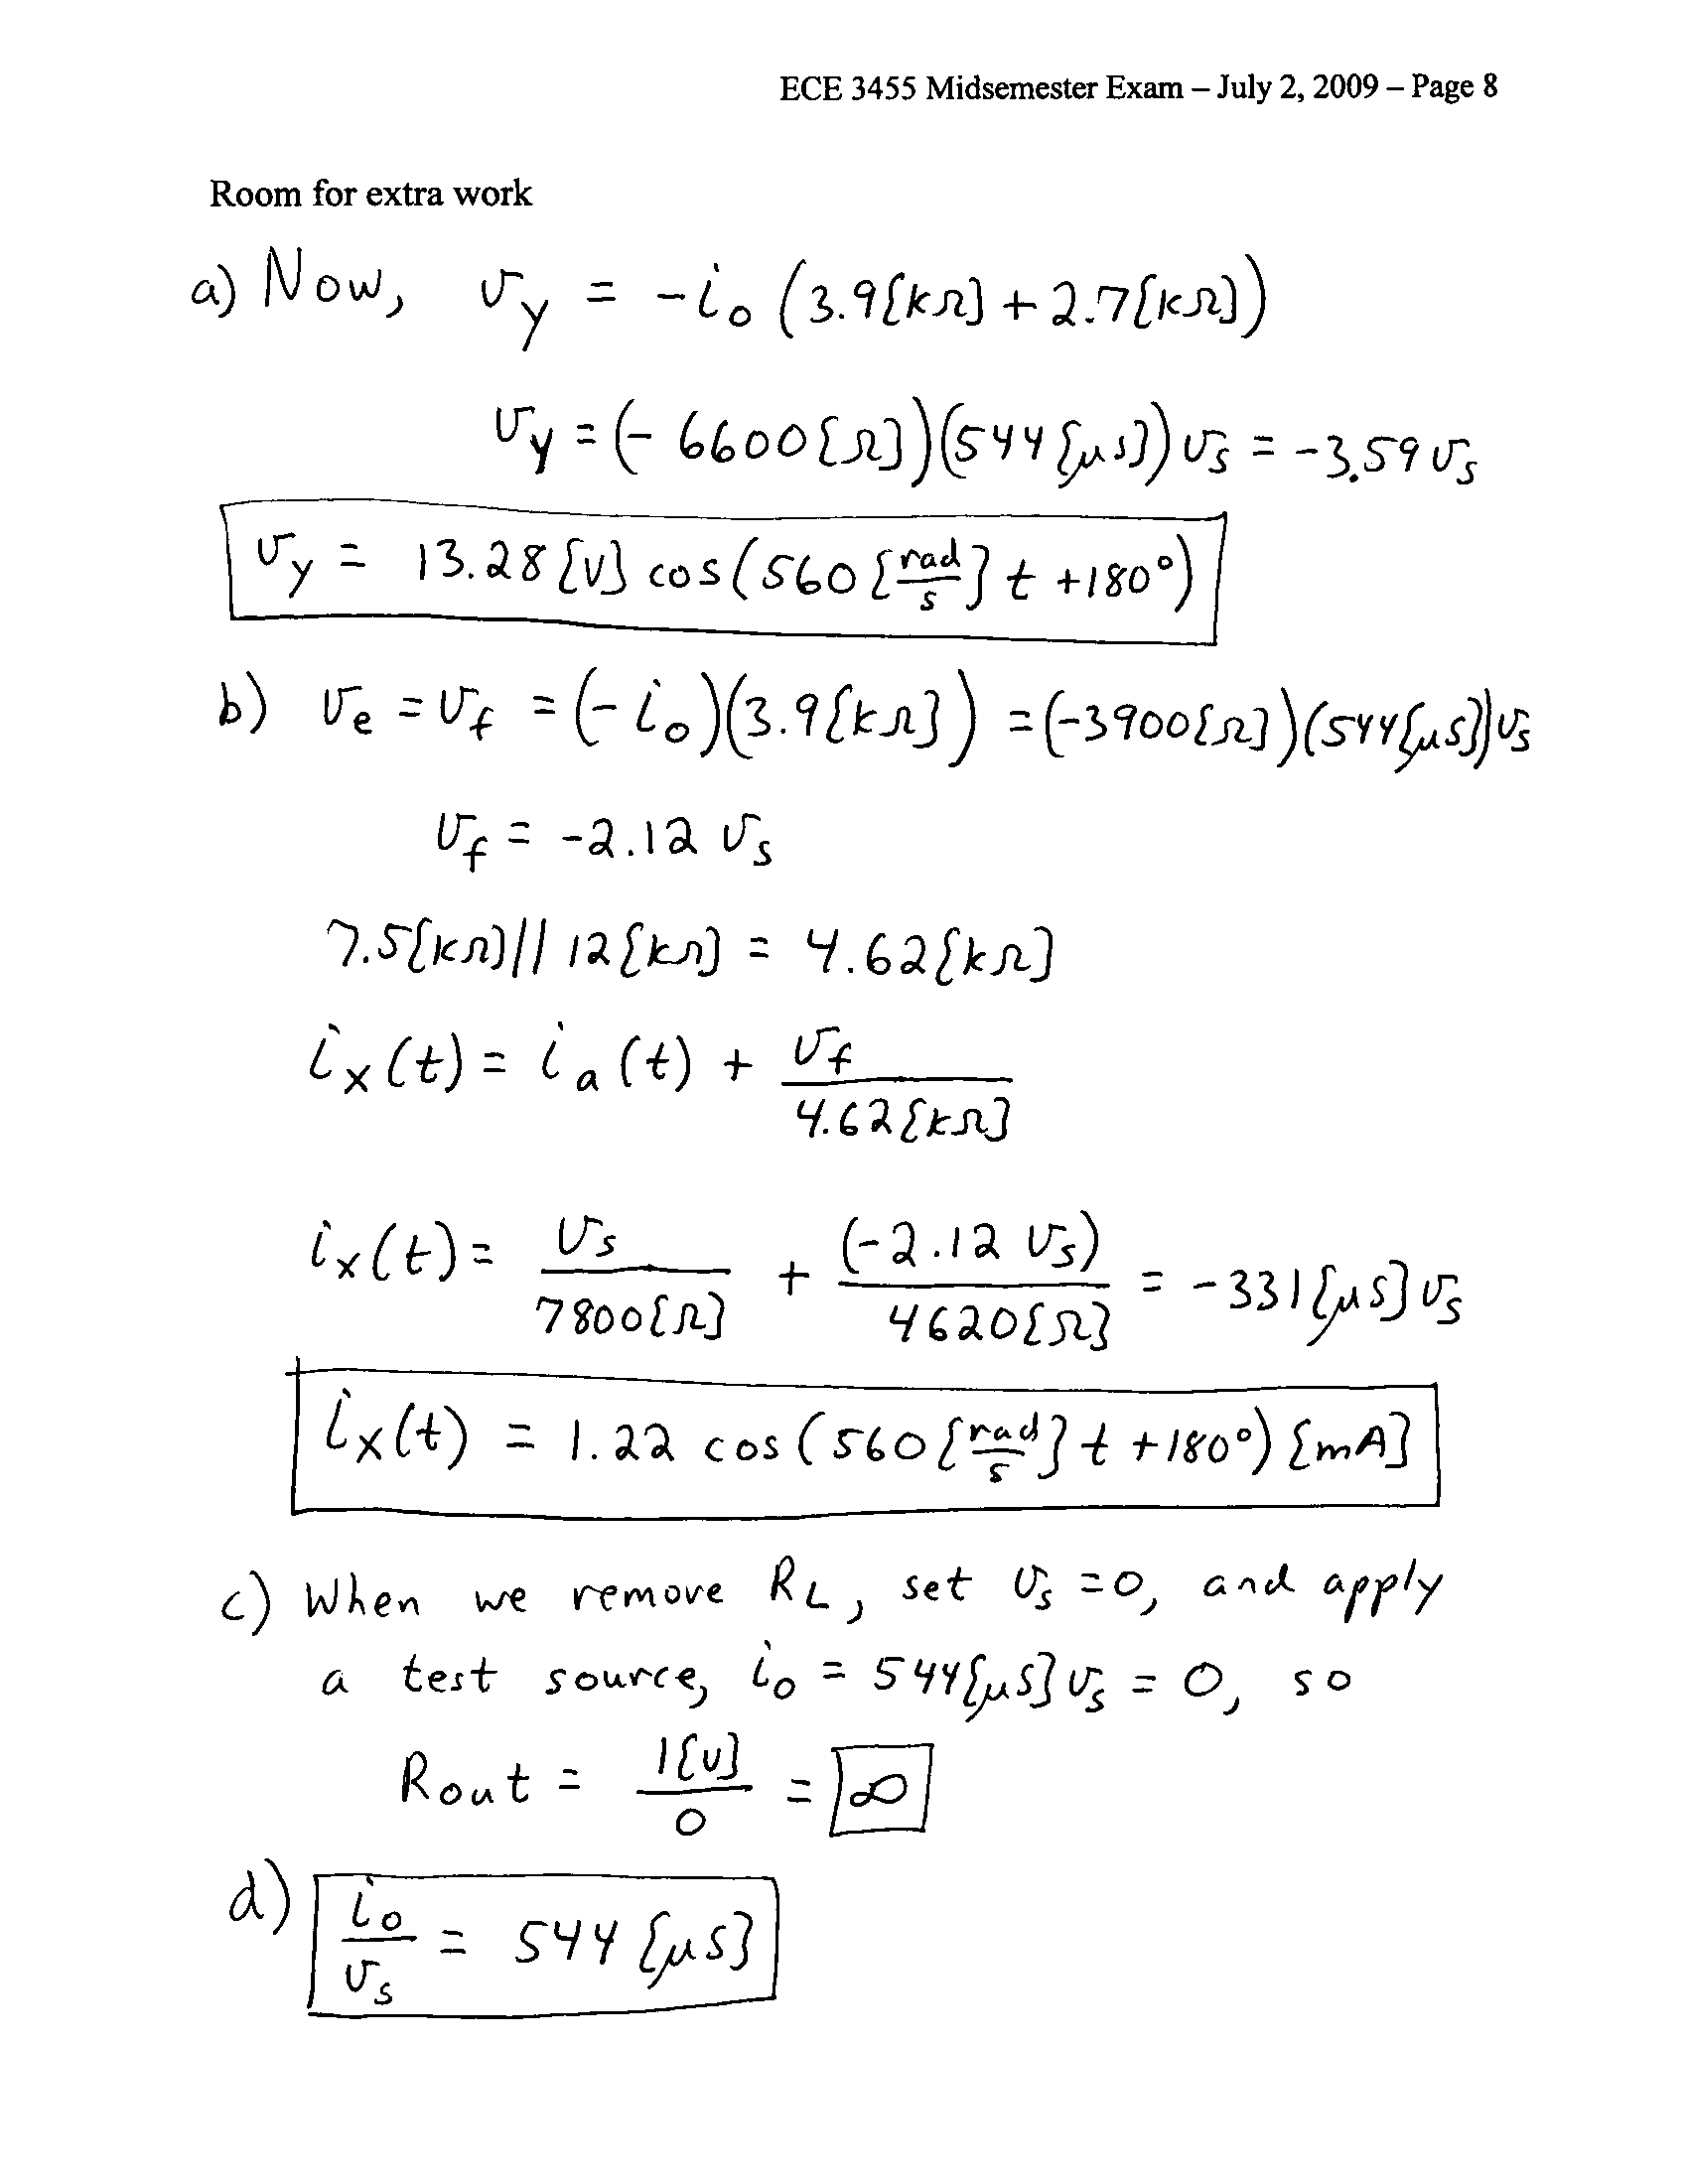 ECE 3455 Midsemester Exam – July 2, 2009 – Page 8
Room for extra work
a) Now, v_y = -i_o (3.9{kΩ} + 2.7{kΩ})
v_y = (- 6600{Ω})(544{μs}) v_s = -3.59 v_s
v_y = 13.28{V} cos(560{rad/s} t +180°)
b) v_e = v_f = (- i_o)(3.9{kΩ}) = (-3900{Ω})(544{μs}) v_s
v_f = -2.12 v_s
7.5{kΩ} || 12{kΩ} = 4.62{kΩ}
i_x(t) = i_a(t) + v_f / 4.62{kΩ}
i_x(t) = v_s / 7800{Ω} + (-2.12 v_s) / 4620{Ω} = -331{μS} v_s
i_x(t) = 1.22 cos(560{rad/s} t +180°) {mA}
c) When we remove R_L, set v_s = 0, and apply
a test source, i_o = 544{μS} v_s = 0, so
Rout = 1{V} / 0 = ∞
d) i_o / v_s = 544 {μS}